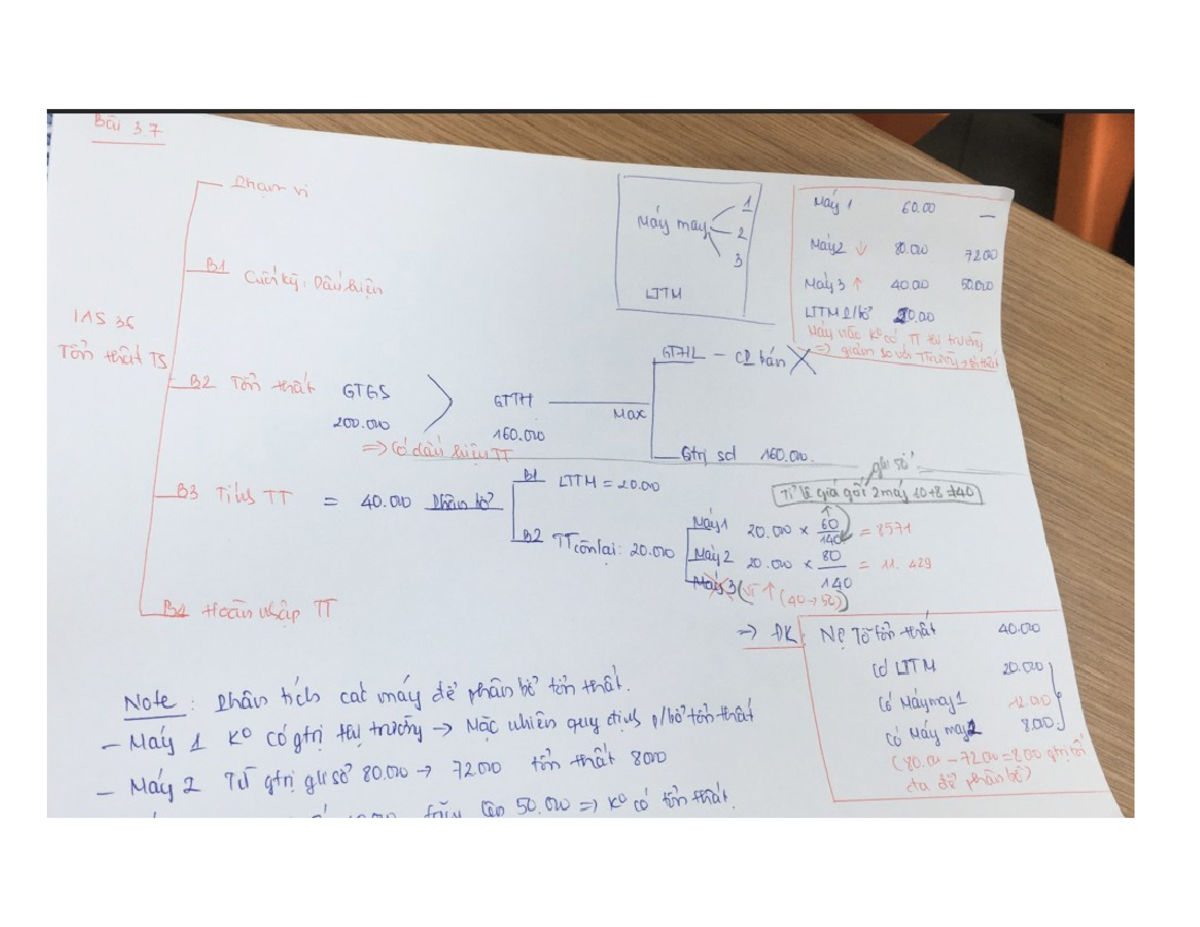 Bài 3.7
Phạm vi
B1 Cuối kỳ: Dấu hiện
IAS 36
Tổn thất TS
B2 Tổn thất GTGS > GTTH
200.000 160.000
=> Có dấu hiệu TT
Max
GTHL - CP bán X
Gtrị sd 160.000.
Máy may 1
2
3
LTTM
Máy 1 60.00 —
Máy 2 ↓ 80.000 72.00
Máy 3 ↑ 40.00 50.000
LTTM p/bổ 20.00
Máy móc K° có TT thị trường
=> giảm so với TTrường
B3 Tính TT = 40.000 Phân bổ
B1 LTTM = 20.000
B2 TT còn lại: 20.000
ghi sổ
Tỉ lệ giá gối 2 máy
Máy 1 20.000 × 60/140 = 8571
Máy 2 20.000 × 80/140 = 11.429
Máy 3 (vì ↑ (40→50))
B4 Hoàn nhập TT
=> ĐK: Nợ TS tổn thất 40.000
Có LTTM 20.000
Có Máy may 1 12.000
Có Máy may 2 8.000
(80.00 - 72.00 = 8.00 gtrị tối
đa để phân bổ)
Note: Phân tích các máy để phân bổ tổn thất.
- Máy 1 K° có gtrị thị trường → Mặc nhiên quy định p/bổ tổn thất
- Máy 2 Từ gtrị ghi sổ 80.000 → 72.000 tổn thất 8000
50.000 => K° có tổn thất.